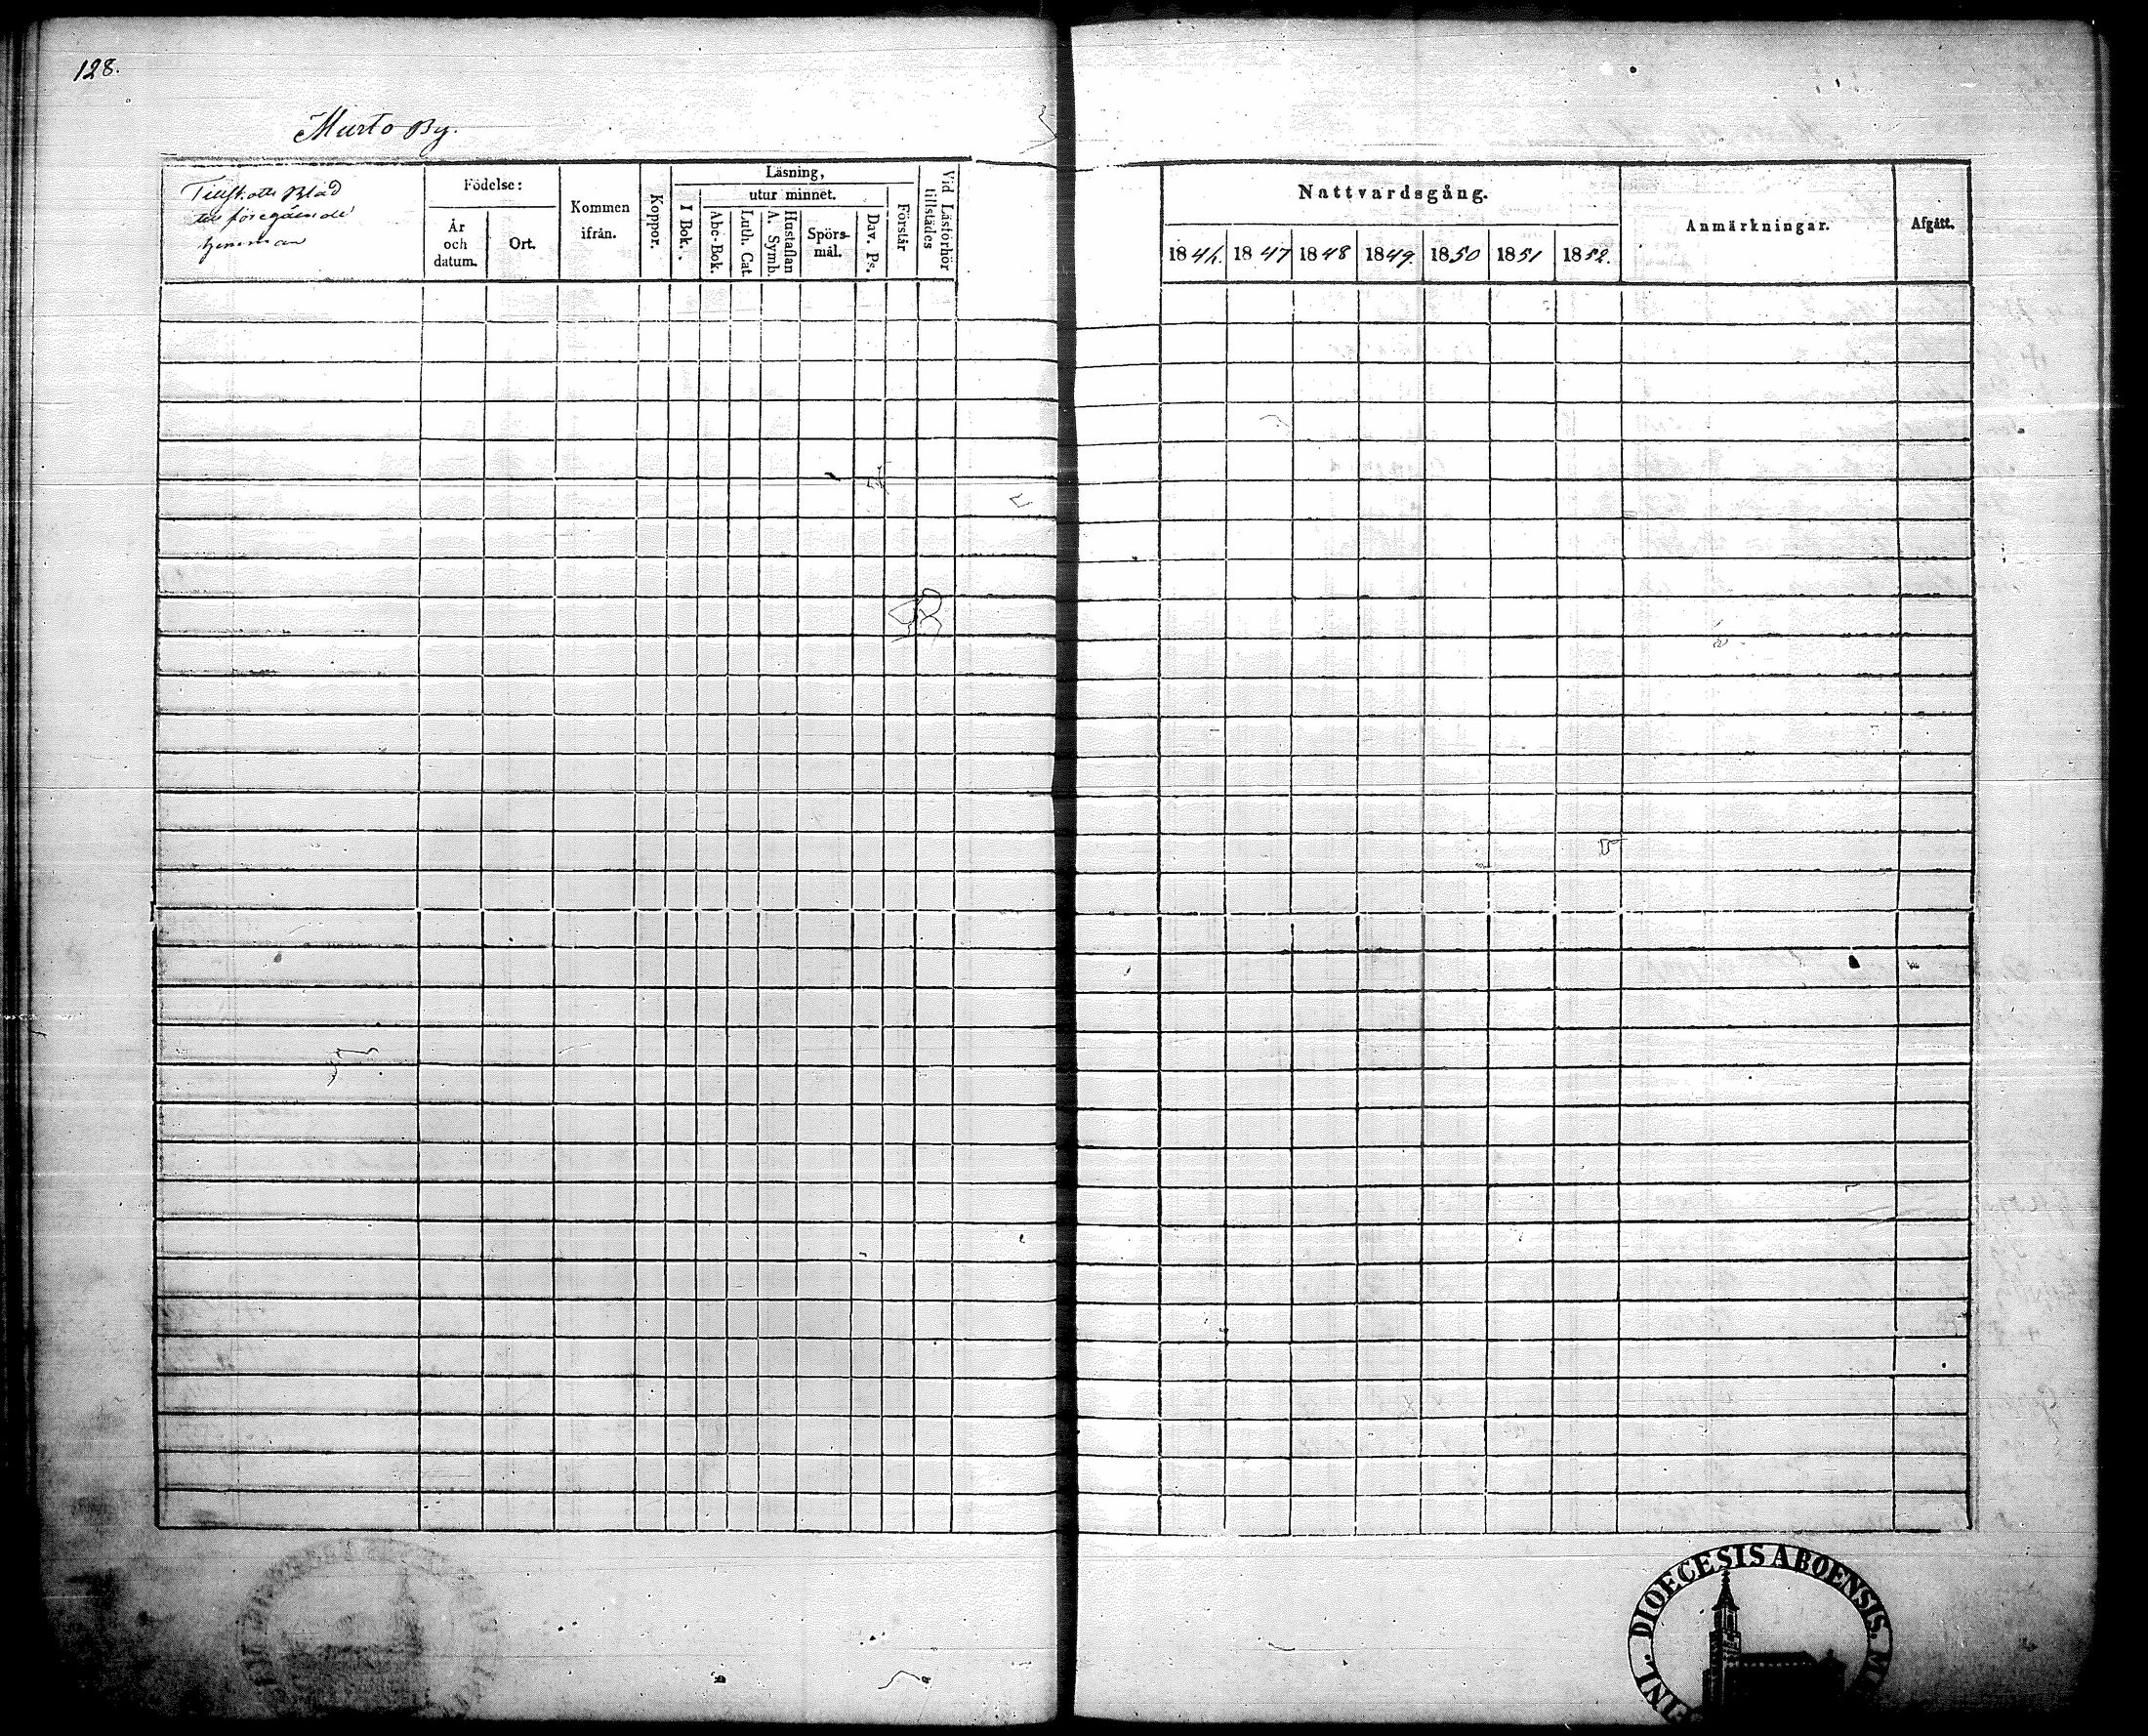 128.
Murto By.
Tillskotts Blad
till föregående
hemman
Födelse:
År
och
datum.
Ort.
Kommen
ifrån.
Koppor.
Läsning,
utur minnet.
I Bok.
Abc-Bok.
Luth. Cat.
Hustaflan
A. Symb.
Spörs-
mål.
Dav. Ps.
Förstår
Vid Läsförhör
tillstädes
Nattvardsgång.
1846. 1847 1848 1849. 1850 1851 1852.
Anmärkningar.
Afgått.
DIOECESIS ABOENSIS.